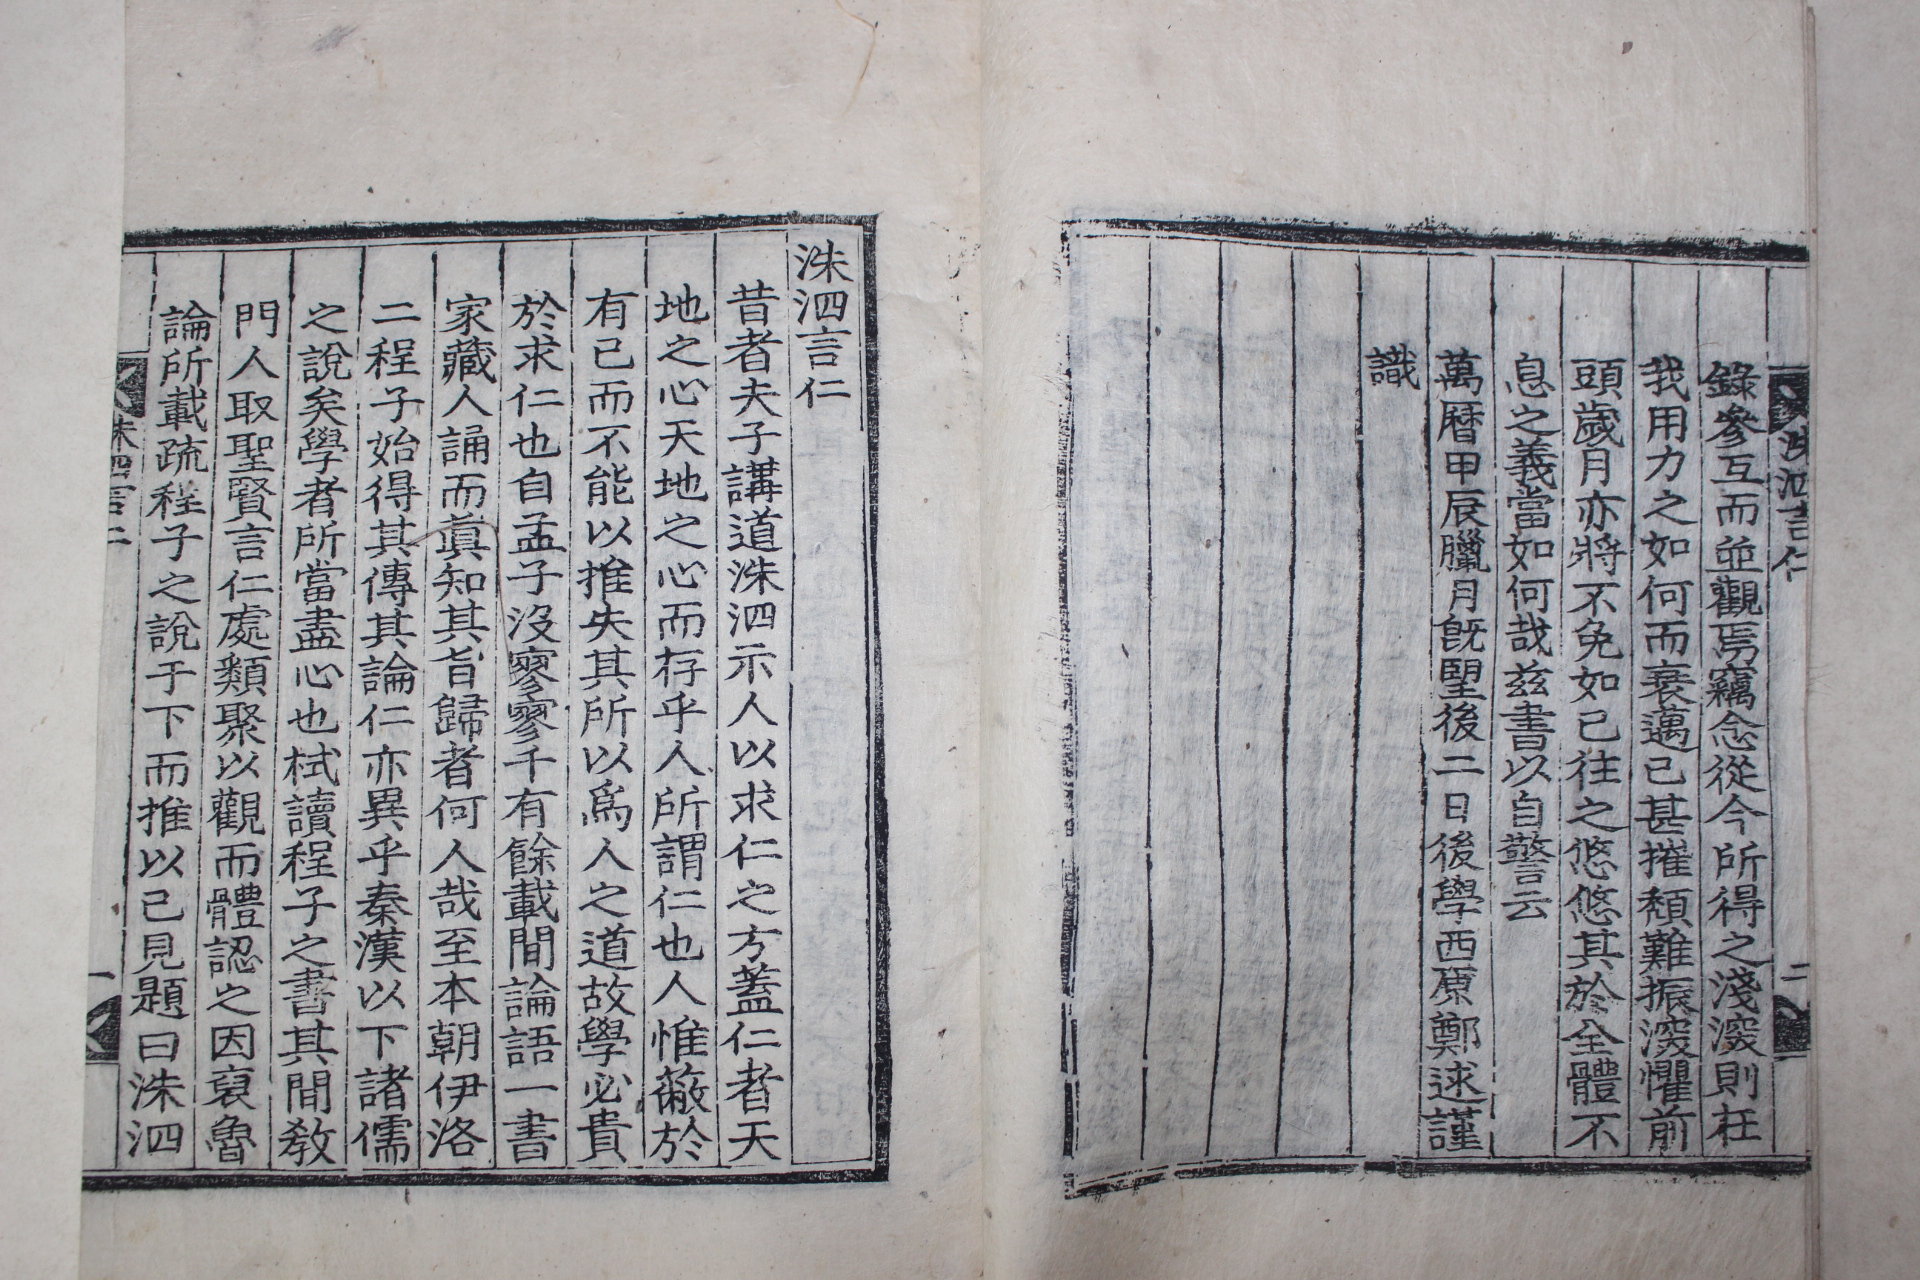 洙泗言仁
二
錄參互而並觀焉竊念從今所得之淺深則在
我用力之如何而衰邁已甚摧頹難振深懼前
頭歲月亦將不免如已往之悠悠其於全體不
息之義當如何哉玆書以自警云
萬曆甲辰臘月旣望後二日後學西原鄭逑謹
識
洙泗言仁
昔者夫子講道洙泗示人以求仁之方蓋仁者天
地之心天地之心而存乎人所謂仁也人惟蔽於
有已而不能以推失其所以爲人之道故學必貴
於求仁也自孟子沒寥寥千有餘載間論語一書
家藏人誦而眞知其旨歸者何人哉至本朝伊洛
二程子始得其傳其論仁亦異乎秦漢以下諸儒
之說矣學者所當盡心也栻讀程子之書其間敎
門人取聖賢言仁處類聚以觀而體認之因裒魯
論所載疏程子之說于下而推以已見題曰洙泗
洙泗言仁
一